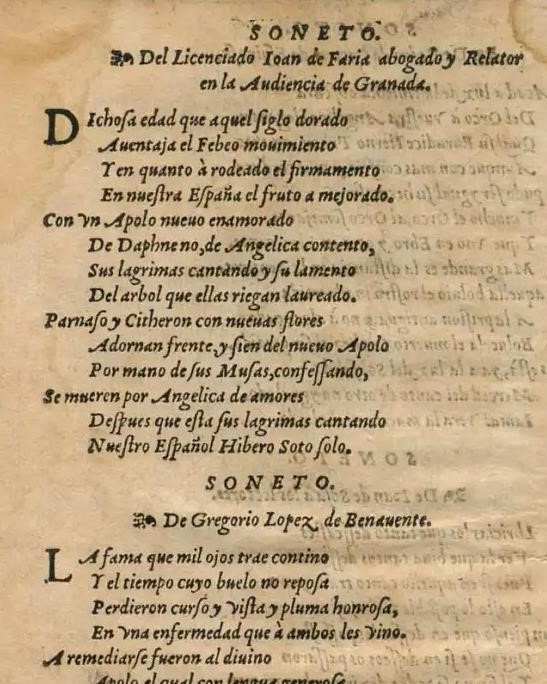 SONETO.
Del Licenciado Ioan de Faria abogado y Relator
en la Audiencia de Granada.
DIchosa edad que aquel siglo dorado
Auentaja el Febeo mouimiento
Y en quanto à rodeado el firmamento
En nuestra España el fruto a mejorado.
Con vn Apolo nueuo enamorado
De Daphne no, de Angelica contento,
Sus lagrimas cantando y su lamento
Del arbol que ellas riegan laureado.
Parnaso y Citheron con nueuas flores
Adornan frente, y sien del nueuo Apolo
Por mano de sus Musas, confessando,
Se mueren por Angelica de amores
Despues que esta sus lagrimas cantando
Nuestro Español Hibero Soto solo.
SONETO.
De Gregorio Lopez de Benauente.
LA fama que mil ojos trae contino
Y el tiempo cuyo buelo no reposa
Perdieron curso y vista y pluma honrosa,
En vna enfermedad que à ambos les vino.
A remediarse fueron al diuino
Apolo el qual con lengua generosa